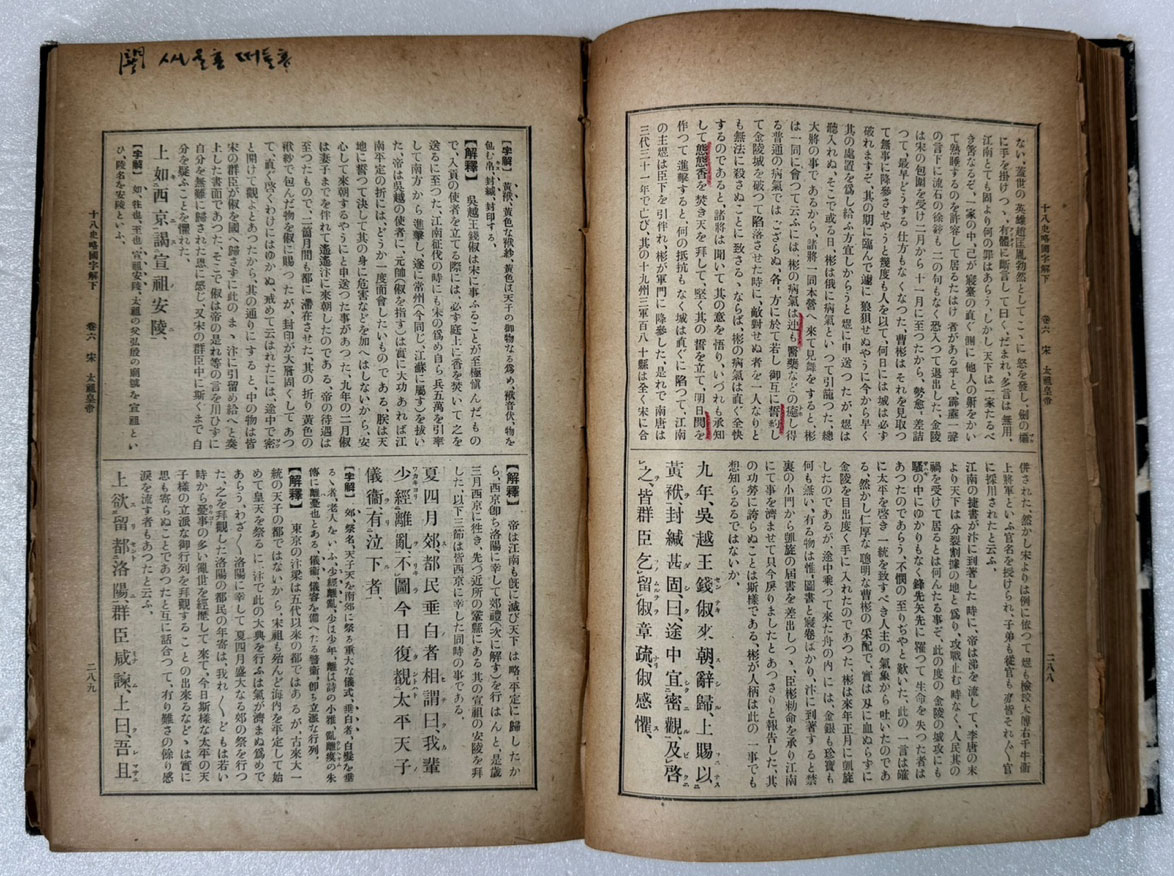 十八史略國字解下 卷六 宋 太祖皇帝
二八八
ない、蓋世の英雄趙匡胤勃然としてこゝに怒を發し、劍の欛
に手を掛けつゝ、有體に斷言して曰く、だまれ、多言は無用、
江南とても固より何の罪はあらう、しかし天下は一家たるべ
き筈なるぞ、一家の中、己が寢臺の直ぐ側に他人の鼾をかい
て熟睡するのを許容して居るたはけ者がある乎と、霹靂一聲
の言下に流石の徐鉉も二の句もなく恐入つて退出した、金陵
は宋の包圍を受け二月から十一月に至つたから、勢愈〻差詰
つて、最早どうする仕方もなくなつた、曹彬はそれを見取つ
て無事に降參させやうと幾度も人を以て、何日には城は必ず
破れますぞ、其の期に臨んで遽に狼狽せぬやうに今から早く
其の處置を爲し給ふ方宜しからうと煜に申送つたが、煜は
聽入れぬ、そこで或る日、彬は俄に病氣といつて引籠つた、總
大將の事であるから、諸將一同本營へ來て見舞をすると、彬
は一同に會つて云ふには、彬の病氣は迚も醫藥などの癒し得
る普通の病氣ではござらぬ、各〻方に於て若し御互に誓約し
て金陵城を破つて陷落させた時に、敵對せぬ者を一人なりと
も無法に殺さぬことに致さるゝならば、彬の病氣は直ぐ全快
するのであると、諸將は聞いて其の意を悟り、いづれも承知
して態態香を焚き天を拜して、堅く其の誓を立て、明日間を
作つて進擊すると何の抵抗もなく城は直ぐに陷つて、江南
の主煜は臣下を引伴れ、彬が軍門に降參した、是れで南唐は
三代三十一年で亡び、其の十九州三軍百八十縣は全く宋に合
併された、然かし宋よりは例に依つて煜も檢校大傅右千牛衞
上將軍といふ官名を授けられ、子弟も從官も亦皆それ〲官
に採用されたと云ふ、
江南の捷書が汴に到著した時に、帝は涕を流して、李唐の末
より天下は分裂割據の地と爲り、攻戰止む時なく、人民其の
禍を受けて居るとは何んたる事ぞ、此の度の金陵の城攻にも
騷の中にゆかりもなく鋒先矢先に罹つて生命を失つた者は
あつたのであらう、不憫の至りぢやと歎いた、此の一言は確
に太平を啓き一統を致すべき人主の氣象から吐いたのであ
る、然かし仁厚な聰明な曹彬の采配で、實は刄に血ぬらずに
金陵を目出度く手に入れたのであつた、彬は來年正月に凱旋
したのであるが、途中乘つて來た舟の内には、金銀も珍寶も
何も無い、有る物は惟〻圖書と寢卷ばかり、汴に到着すると禁
裏の小門から凱旋の屆書を差出しつゝ、臣彬勅命を承り江南
にて事を濟ませて只今戾りましたとあつさりと報告した、其
の功勞に誇らぬことは斯樣である、彬が人柄は此の一事でも
想知らるゝではないか、
九年、吳越王錢俶來朝、辭歸、上賜以
黃袱封緘甚固、曰、途中宜密觀、及啓
之、皆群臣乞留俶章疏、俶感懼、
鬪 새울홈 떠들홈
十八史略國字解下 卷六 宋 太祖皇帝
二八九
【字解】 黃袱、黃色な袱紗、黃色は天子の御物なる爲め、袱音伏、物を
包む帛、封緘、封印する、
【解釋】 吳越王錢俶は宋に事ふることが至極愼んだもの
で、入貢の使者を立てる際には、必ず庭上に香を焚いて之を
送るに至つた、江南征伐の時にも宋の爲め自ら兵五萬を引率
して南方から進擊し、遂に常州(今同じ、江蘇に屬す)を拔い
た、帝は吳越の使者に、元帥(俶を指す)は實に大功あれば江
南平定の折には、どうか一度面會したいものである、朕は天
地に誓つて決して其の身に危害などを加へはしないから、安
心して來朝するやうにと申送つた事があつた、九年の二月俶
は妻子までを伴れて遙遙汴に來朝したのである、帝の待遇は
至つたもので、二箇月間も都に滯在させた、其の折り黃色の
袱紗で包んだ物を俶に賜つたが、封印が大層固くしてあつ
て、直ぐ啓くわけにはゆかぬ、戒めて云はれたには、途中で密
と開けて觀よとあつたから、其の通りにすると、中の物は皆
宋の群臣が俶を國へ歸さずに此のまゝ汴に引留め給へと奏
上した書面であつた、そこで俶は帝の是れ等の言を用ひずに
自分を無難に歸された恩に感じ、又宋の群臣中に斯くまで自
分を疑ふことを懼れた、
上如西京、謁宣祖安陵、
【字解】 如、往也、至也、宣祖安陵、太祖の父弘殷の廟號を宣祖とい
ひ、陵名を安陵といふ、
【解釋】 帝は江南も旣に滅び天下は略〻平定に歸したか
ら、西京卽ち洛陽に幸して郊禮(次に解す)を行はんと、是歲
三月西京に徃き、先つ近所の鞏縣にある其の宣祖の安陵を拜
した、以下三節は皆西京に幸した同時の事である、
夏四月郊、都民垂白者相謂曰、我輩
少經離亂、不圖今日復觀太平天子
儀衞、有泣下者、
【字解】 郊、祭名、天子天を南郊に祭る重大な儀式、垂白者、白髮を垂
るゝ者、老人をいふ、少經離亂、少は少年、離は詩の小雅、亂離瘼の朱
傳に離憂也とある、儀衞、儀容を備へたる警衞、卽ち立派な行列、
【解釋】 東京の汴梁は五代以來の都ではあるが、古來大一
統の天子の都ではないから、宋祖も殆んど海內を平定して始
めて皇天を祭るに、汴で此の大典を行ふは氣が濟まぬ爲めで
あらう、わざ〱洛陽に幸して夏四月盛大なる郊の祭を行つ
た、之を拜觀した洛陽の都民の年寄は、我れ〱どもは若い
時から憂事の多い亂世を經歷して來て、今日斯樣な太平の天
子樣の立派な御行列を拜觀することの出來るなどゝは實に
思も寄らぬことであつたと互に話合つて、有り難さの餘り感
淚を流す者もあつたと云ふ、
上欲留都洛陽、群臣咸諫、上曰、吾且